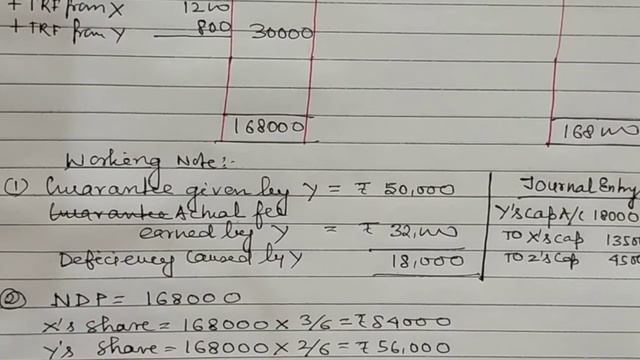 + TRF from X 1200
+ TRF from Y 800 30000
168000 168000
Working Note:-
(1) Guarantee given by Y = ₹ 50,000
Guarantee Actual fee
earned by Y = ₹ 32,000
Deficiency caused by Y 18,000
Journal Entry
Y's Cap A/C 18000
To X's Cap 1350
To Z's Cap 4500
(2) NDP = 168000
X's Share = 168000 × 3/6 = ₹ 84000
Y's Share = 168000 × 2/6 = ₹ 56,000